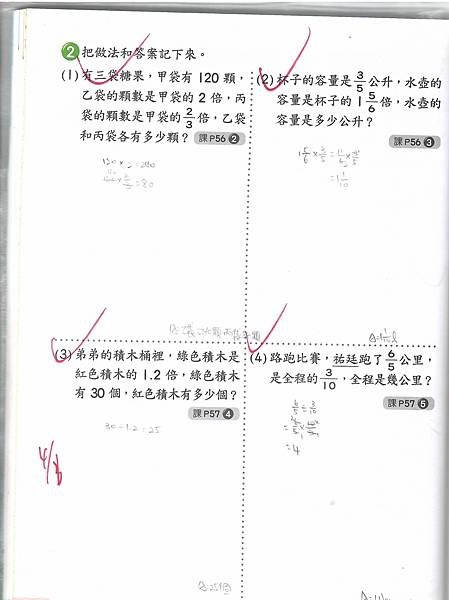 2 把做法和答案記下來。
(1) 有三袋糖果，甲袋有 120 顆，
乙袋的顆數是甲袋的 2 倍，丙
袋的顆數是甲袋的 2/3 倍，乙袋
和丙袋各有多少顆？
課P56 2
120×2=240
120×2/3=80
(2) 杯子的容量是 3/5 公升，水壺的
容量是杯子的 1 5/6 倍，水壺的
容量是多少公升？
課P56 3
1 5/6×3/5=11/6×3/5
=1 1/10
(3) 弟弟的積木桶裡，綠色積木是
紅色積木的 1.2 倍，綠色積木
有 30 個，紅色積木有多少個？
課P57 4
30÷1.2=25
A:25個
(4) 路跑比賽，祐廷跑了 6/5 公里，
是全程的 3/10，全程是幾公里？
課P57 5
6/5÷3/10
=4